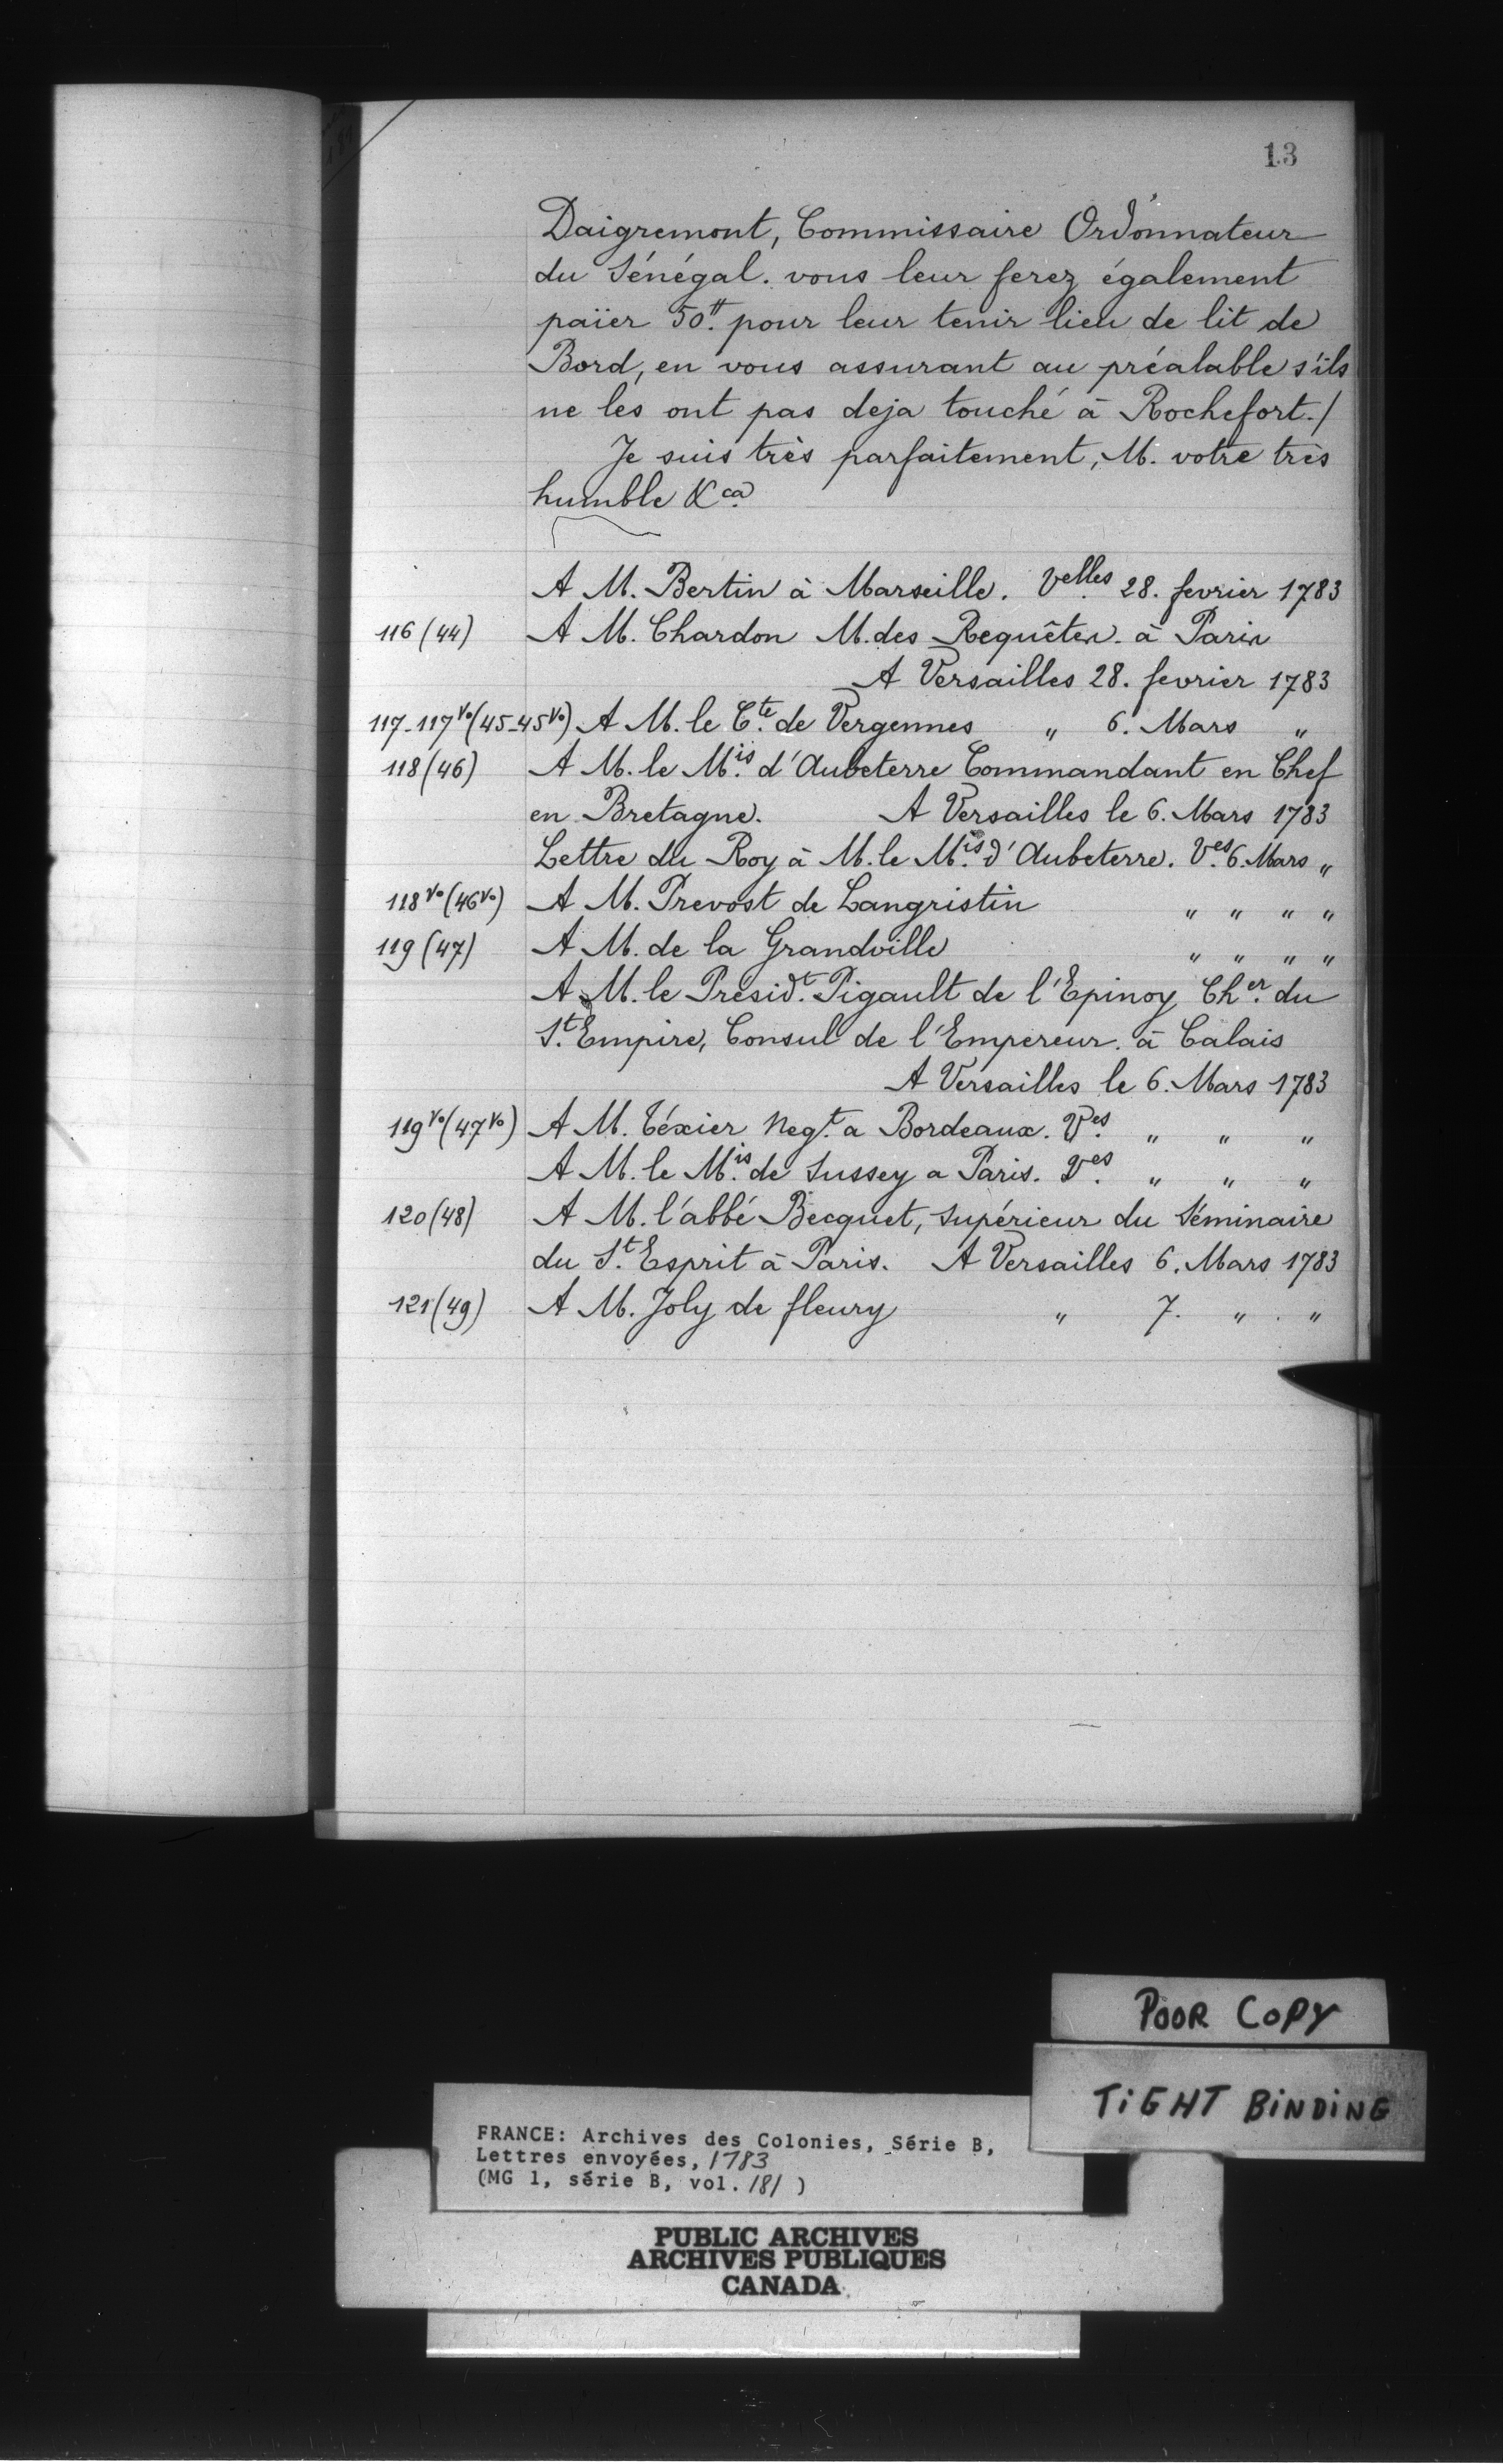 13
Daigremont, Commissaire Ordonnateur
du Sénégal. vous leur ferez également
païer 50.tt pour leur tenir lieu de lit de
Bord, en vous assurant au préalable s'ils
ne les ont pas deja touché à Rochefort./
Je suis très parfaitement, M. votre très
humble &ca.
A M. Bertin à Marseille. Velles. 28. fevrier 1783
116 (44) A M. Chardon M. des Requêtes à Paris
A Versailles 28. fevrier 1783
117-117vo (45-45vo) A M. le Cte. de Vergennes " 6. Mars "
118 (46) A M. le Mis. d'Aubeterre Commandant en Chef
en Bretagne. A Versailles le 6. Mars 1783
Lettre du Roy à M. le Mis. d'Aubeterre. Ves. 6. Mars "
118vo (46vo) A M. Prevost de Langristin " " " "
119 (47) A M. de la Grandville " " " "
A M. le Présidt. Pigault de l'Epinoy Cher. du
St. Empire, Consul de l'Empereur. à Calais
A Versailles le 6. Mars 1783
119vo (47vo) A M. Téxier Negt. a Bordeaux. Ves. " " "
A M. le Mis. de Sussey a Paris. Ves. " " "
120 (48) A M. l'abbé Becquet, Supérieur du Séminaire
du St. Esprit à Paris. A Versailles 6. Mars 1783
121 (49) A M. Joly de fleury " 7. " "
POOR COPY
TIGHT BINDING
FRANCE: Archives des Colonies, Série B,
Lettres envoyées, 1783
(MG 1, série B, vol. 181 )
PUBLIC ARCHIVES
ARCHIVES PUBLIQUES
CANADA